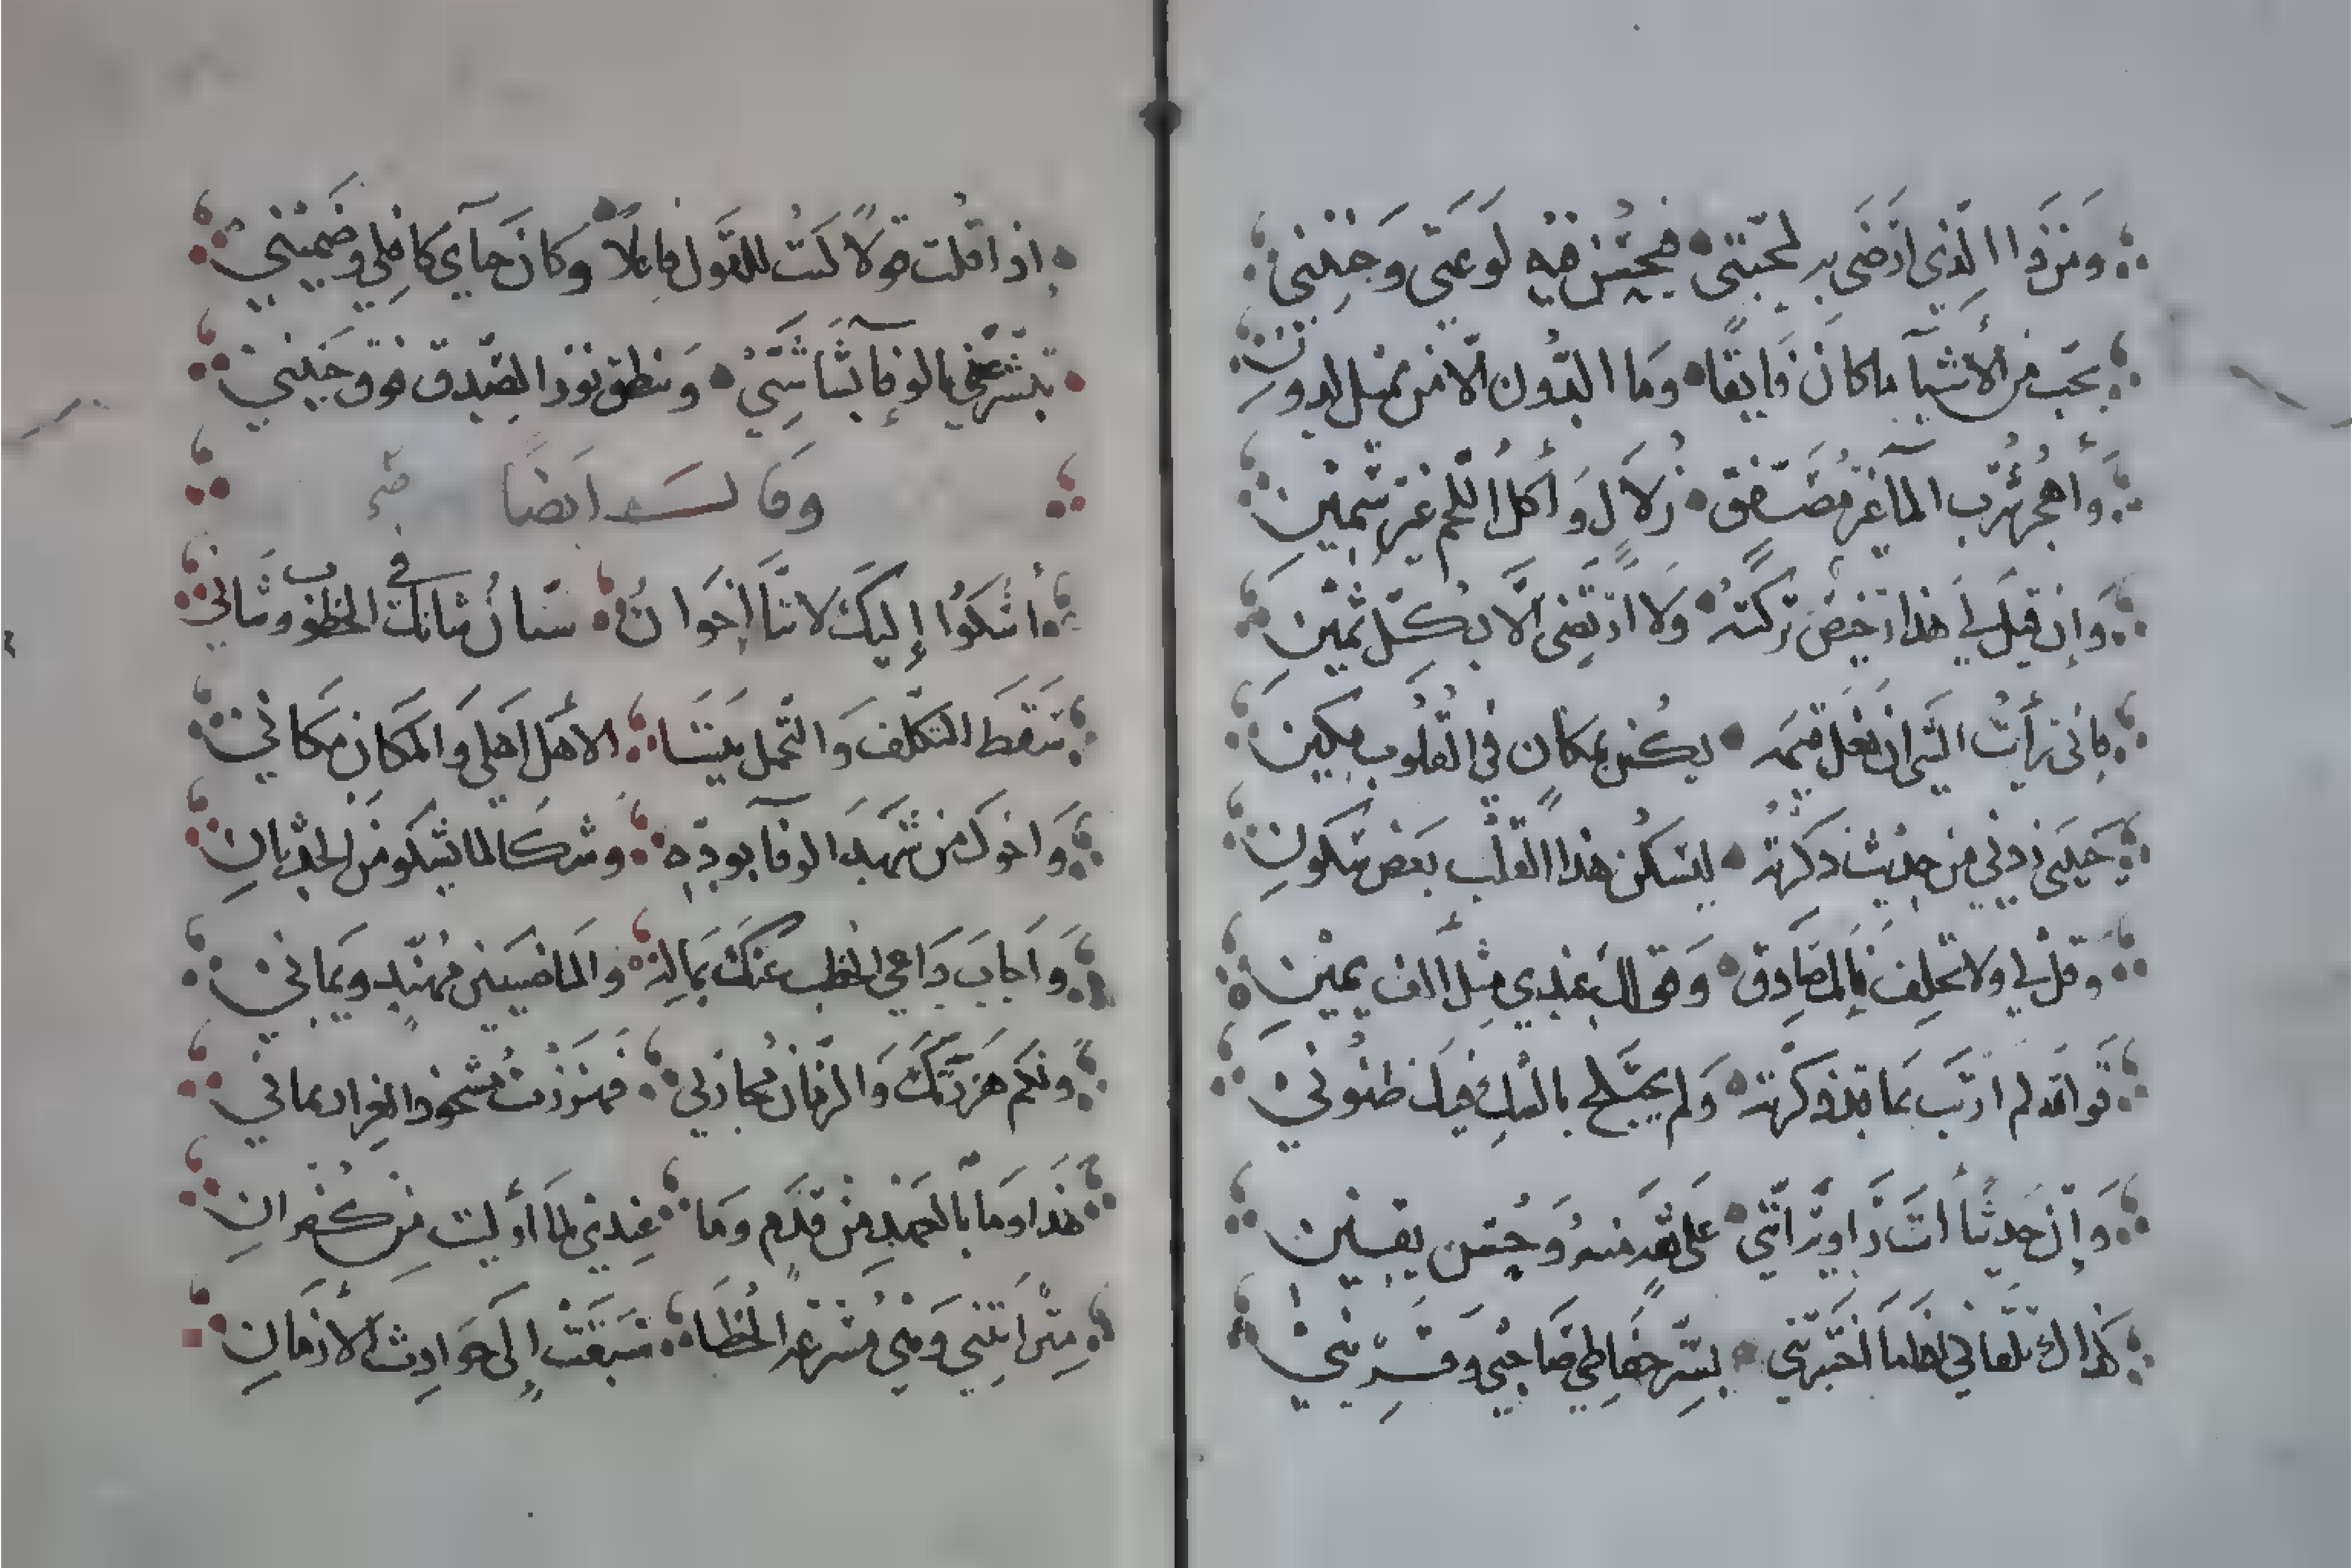 وَمَن هَذَا الَّذِي أرْضَى بِهِ لمحَبَّتي فيحسُن فيه لَوعَتي وَحَنِيني
يحب من الأشيآ ماكان فَايقًا وَمَا الدُّون الّا من يميل لدون
وَأهجرُ شُرْب المآ غيْرَ مُصَفَّق زُلَالٍ وَأكل اللَّحم غَيْرَ سَمِيْنِ
وَإن قيلَ لي هذا رَخيصٌ تركتهُ وَلا ارْتَضِى إلَّا بكُلّ ثَمِيْنِ
فإني رَأيتُ الشي ان يغلُ قيمَه يكُن بمكان في القُلُوبِ مَكِينِ
خَلِيليَ زدني من حديث ذكرته ليسكُنَ هذا القلب بَعضَ سكونِ
وقل لي ولا تحلِف فإنكَ صَادِق وَقَولك عندي مثل ألف يَمِيْنِ
فوالله لم ارْتَبْ بمَا قد ذكرته وَلم يختلج بالشك فيك ظنُونيْ
وَإنّ حَديثًا انتَ رَاويْه انَّنِي عَلى ثقةٍ منه وَحُسن يَقِيْنِ
كذاك تلقاني اذا ما اختبرْتني يسرّ حِفَاظي صَاحبي وَقَرِيْنيْ
إذا قلت قولًا كنتُ للقول فاعلًا وَكان حَيآي كافلي وَضَميْني
تبشر عني بالوفآ بشاشتي وَينطق نور الصّدق فوق جبيني
وقالَــــ ايضًا
أشكوا إليكَ لأننا إخوَانُ سيّان شانك في الخطوب وشاني
سَقَط التكلّف وَالتجمل بيننا الاهل اهلي وَالمكان مكاني
وَاخوك من شهدَ الوفآ بودّهِ وشكا لما يشكو من الحدثانِ
وَاجابَ دَاعي الخطب عنك بمَاله والماضيين مهنّدٍ ويَمَانيْ
ولكم هَزَزْتك وَالزمان محاربي فهزَزْت مشحوذ الغرار يماني
هَذَا وَمَا بالعَهْدِ مِنْ قِدَمٍ وَمَا عندي لما أوليت من كُفرانِ
مِنْ أين تأتيني وَمِني مُسرعه الخطَا سَبَقَتْ إلى حوَادثِ الأزمانِ